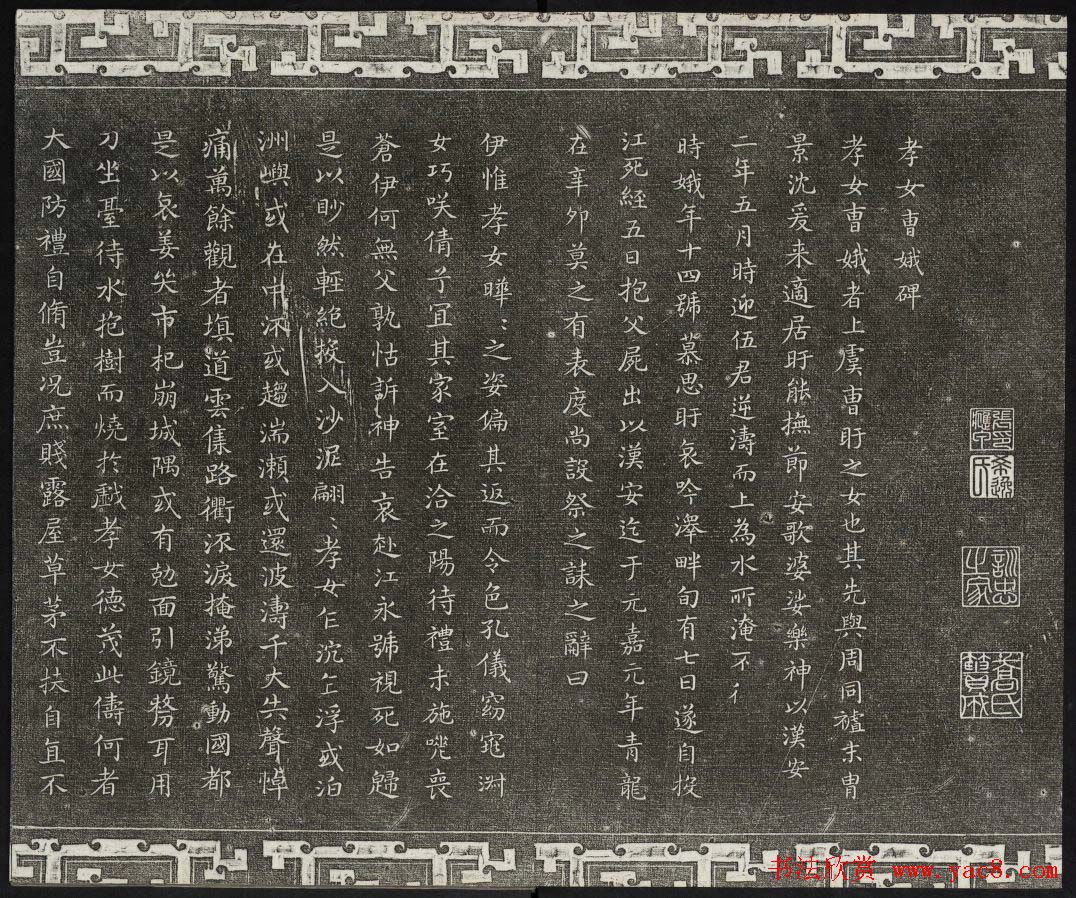 孝女曹娥碑
孝女曹娥者上虞曹盱之女也其先與周同祖末胄
景沈爰来適居盱能撫節安歌婆娑樂神以漢安
二年五月時迎伍君逆濤而上為水所淹不彳
時娥年十四號慕思盱哀吟澤畔旬有七日遂自投
江死經五日抱父屍出以漢安迄于元嘉元年青龍
在辛卯莫之有表度尚設祭之誄之辭曰
伊惟孝女曄〻之姿偏其返而令色孔儀窈窕淑
女巧咲倩兮宜其家室在洽之陽待禮未施嗟喪
蒼伊何無父孰怙訴神告哀赴江永號視死如歸
是以眇然輕絕投入沙泥翩〻孝女乍沉乍浮或泊
洲嶼或在中流或趨湍瀨或還波濤千夫失聲悼
痛萬餘觀者填道雲集路衢流淚掩涕驚動國都
是以哀姜哭市杞崩城隅或有剋面引鏡剺耳用
刀坐臺待水抱樹而燒於戲孝女德茂此儔何者
大國防禮自脩豈況庶賤露屋草茅不扶自直不
希逸
訓忠之家
喬氏簣成
书法欣赏 www.yac8.com